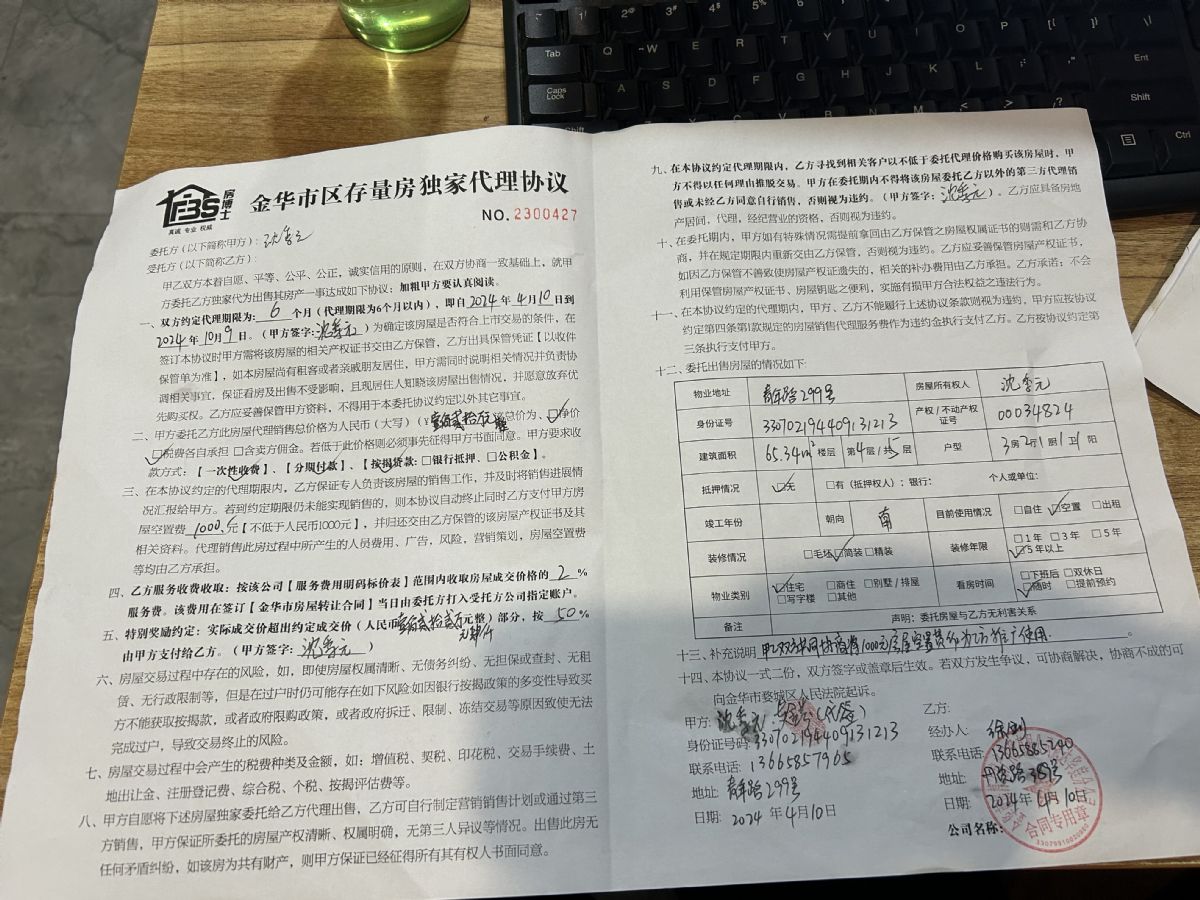 房博士
FBS
真诚 专业 权威
金华市区存量房独家代理协议
NO. 2300427
委托方(以下简称甲方):沈季元
受托方(以下简称乙方):
甲乙双方本着自愿、平等、公平、公正,诚实信用的原则,在双方协商一致基础上,就甲
方委托乙方独家代为出售其房产一事达成如下协议:加粗甲方要认真阅读。
一、双方约定代理期限为: 6 个月(代理期限为6个月以内),即自2024年4月10日到
2024年10月9日。(甲方签字:沈季元)为确定该房屋是否符合上市交易的条件,在
签订本协议时甲方需将该房屋的相关产权证书交由乙方保管,乙方出具保管凭证【以收件
保管单为准】,如本房屋尚有租客或者亲戚朋友居住,甲方需同时说明相关情况并负责协
调相关事宜,保证看房及出售不受影响,且现居住人知晓该房屋出售情况,并愿意放弃优
先购买权。乙方应妥善保管甲方资料,不得用于本委托协议约定以外其它事宜。
二、甲方委托乙方此房屋代理销售总价格为人民币(大写)(¥壹佰贰拾万元整)该总价为、☑净价
☑税费各自承担 □含卖方佣金。若低于此价格则必须事先征得甲方书面同意。甲方要求收
款方式:【一次性收费】、【分期付款】、【按揭贷款:□银行抵押、□公积金】。
三、在本协议约定的代理期限内,乙方保证专人负责该房屋的销售工作,并及时将销售进展情
况汇报给甲方。若到约定期限仍未能实现销售的,则本协议自动终止同时乙方支付甲方房
屋空置费 1000 元【不低于人民币1000元】,并归还交由乙方保管的该房屋产权证书及其
相关资料。代理销售此房过程中所产生的人员费用、广告,风险,营销策划,房屋空置费
等均由乙方承担。
四、乙方服务收费收取:按该公司【服务费用明码标价表】范围内收取房屋成交价格的 2 %
服务费。该费用在签订【金华市房屋转让合同】当日由委托方打入受托方公司指定账户。
五、特别奖励约定:实际成交价超出约定成交价(人民币壹佰贰拾贰万元整)部分,按 50 %
由甲方支付给乙方。(甲方签字:沈季元)
六、房屋交易过程中存在的风险,如,即使房屋权属清晰、无债务纠纷、无担保或查封、无租
赁、无行政限制等,但是在过户时仍可能存在如下风险如因银行按揭政策的多变性导致买
方不能获取按揭款,或者政府限购政策,或者政府拆迁、限制、冻结交易等原因致使无法
完成过户,导致交易终止的风险。
七、房屋交易过程中会产生的税费种类及金额,如:增值税、契税、印花税、交易手续费、土
地出让金、注册登记费、综合税、个税、按揭评估费等。
八、甲方自愿将下述房屋独家委托给乙方代理出售,乙方可自行制定营销销售计划或通过第三
方销售,甲方保证所委托的房屋产权清晰、权属明确,无第三人异议等情况。出售此房无
任何矛盾纠纷,如该房为共有财产,则甲方保证已经征得所有其有权人书面同意。
九、在本协议约定代理期限内,乙方寻找到相关客户以不低于委托代理价格购买该房屋时,甲
方不得以任何理由推脱交易。甲方在委托期内不得将该房屋委托乙方以外的第三方代理销
售或未经乙方同意自行销售,否则视为违约。(甲方签字:沈季元)。乙方应具备房地
产居间,代理,经纪营业的资格,否则视为违约。
十、在委托期内,甲方如有特殊情况需提前拿回由乙方保管之房屋权属证书的则需和乙方协
商,并在规定期限内重新交由乙方保管,否则视为违约。乙方应妥善保管房屋产权证书,
如因乙方保管不善致使房屋产权证遗失的,相关的补办费用由乙方承担。乙方承诺:不会
利用保管房屋产权证书、房屋钥匙之便利,实施有损甲方合法权益之违法行为。
十一、在本协议约定的代理期内,甲方、乙方不能履行上述协议条款则视为违约,甲方应按协议
约定第四条第1款规定的房屋销售代理服务费作为违约金执行支付乙方。乙方按协议约定第
三条执行支付甲方。
十二、委托出售房屋的情况如下:
物业地址 青年路299号 房屋所有权人 沈季元
身份证号 330702194409131213 产权/不动产权证号 00034824
建筑面积 65.34m² 楼层 第4层/共5层 户型 3房2厅1厨1卫1阳
抵押情况 ☑无 □有(抵押权人):银行: 个人或单位:
竣工年份 朝向 南 目前使用情况 □自住 ☑空置 □出租
装修情况 □毛坯 ☑简装 □精装 装修年限 □1年 □3年 □5年 ☑5年以上
物业类别 ☑住宅 □商住 □别墅/排屋 □写字楼 □其他 看房时间 □下班后 □双休日 ☑随时 □提前预约
备注 声明:委托房屋与乙方无利害关系
十三、补充说明 甲乙双方共同协商将1000元房屋空置费作为乙方推广使用。
十四、本协议一式二份,双方签字或盖章后生效。若双方发生争议,可协商解决,协商不成的可
向金华市婺城区人民法院起诉。
甲方:沈季元 (代签)
身份证号码:330702194409131213
联系电话:13665857965
地址:青年路299号
日期:2024年4月10日
乙方:
经办人:徐刚
联系电话:13665885240
地址:丹溪路388号
日期:2024年4月10日
公司名称:
合同专用章